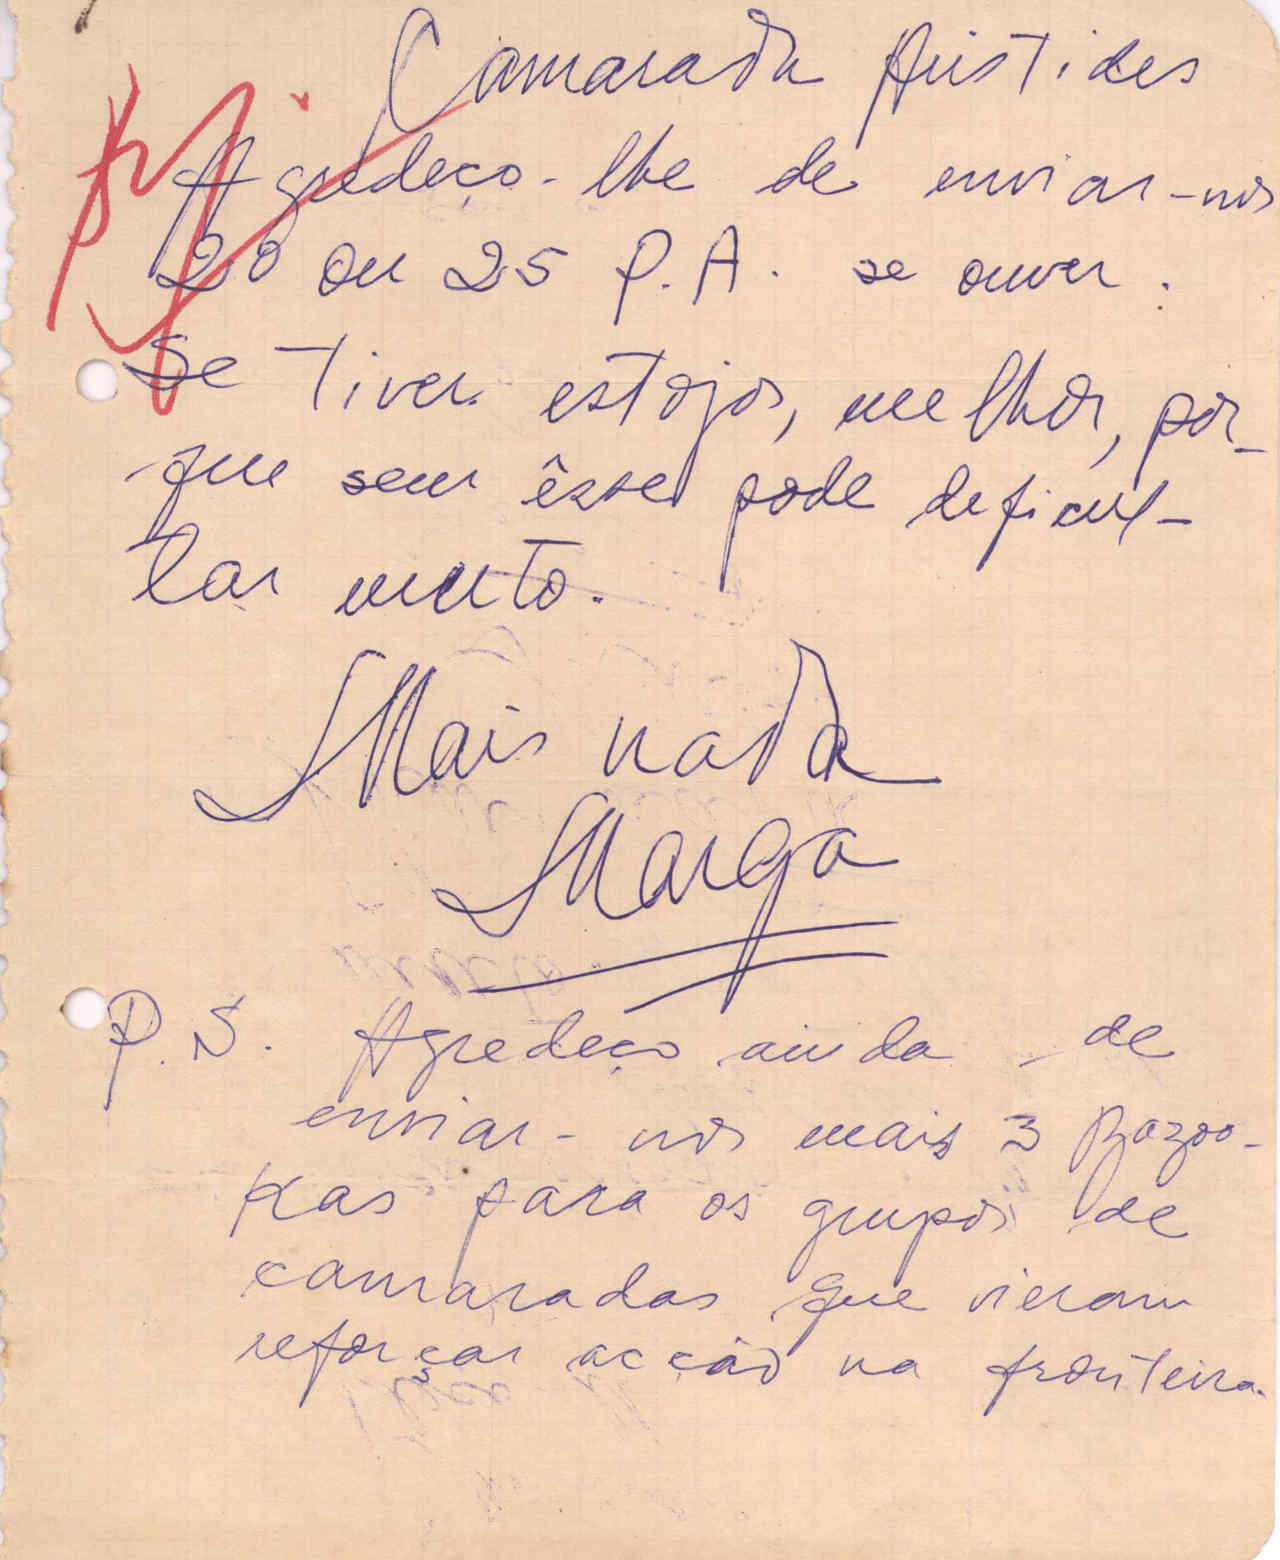 Camarada Aristides
Agredeço-lhe de enviar-nos
20 ou 25 P.A. se ouver.
Se tiver estojos, melhor, por-
que sem êsse pode deficul-
tar muito.
Mais nada
Marga
P.S. Agredeço ainda - de
enviar-nos mais 3 Bazoo-
kas para os grupos de
camaradas que vieram
reforçar acção na fronteira.